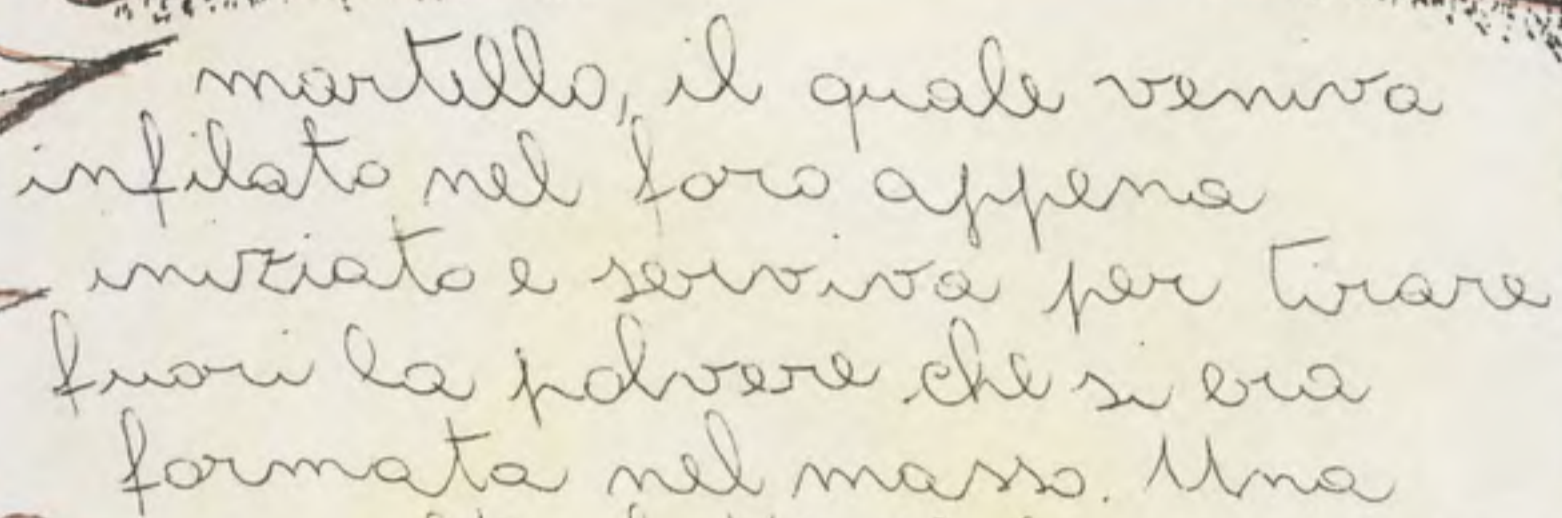 martello, il quale veniva
infilato nel foro appena
iniziato e serviva per tirare
fuori la polvere che si era
formata nel masso. Una